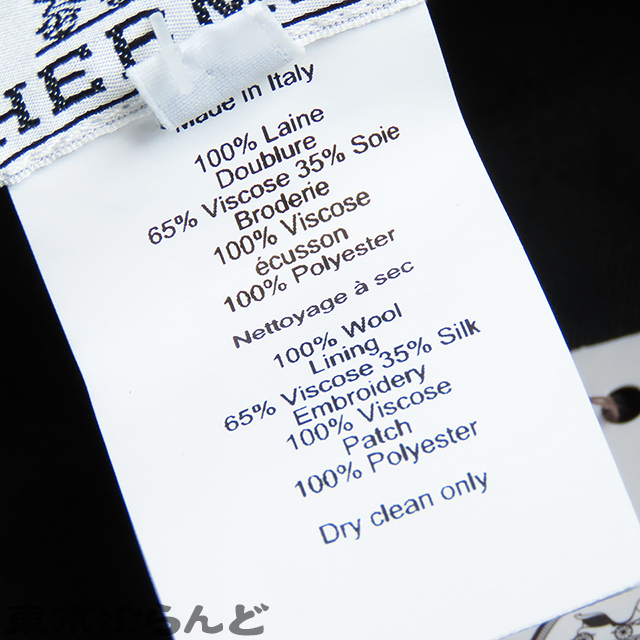 HERM
Made in Italy
100% Laine
Doublure
65% Viscose 35% Soie
Broderie
100% Viscose
écusson
100% Polyester
Nettoyage à sec
100% Wool
Lining
65% Viscose 35% Silk
Embroidery
100% Viscose
Patch
100% Polyester
Dry clean only
らんど